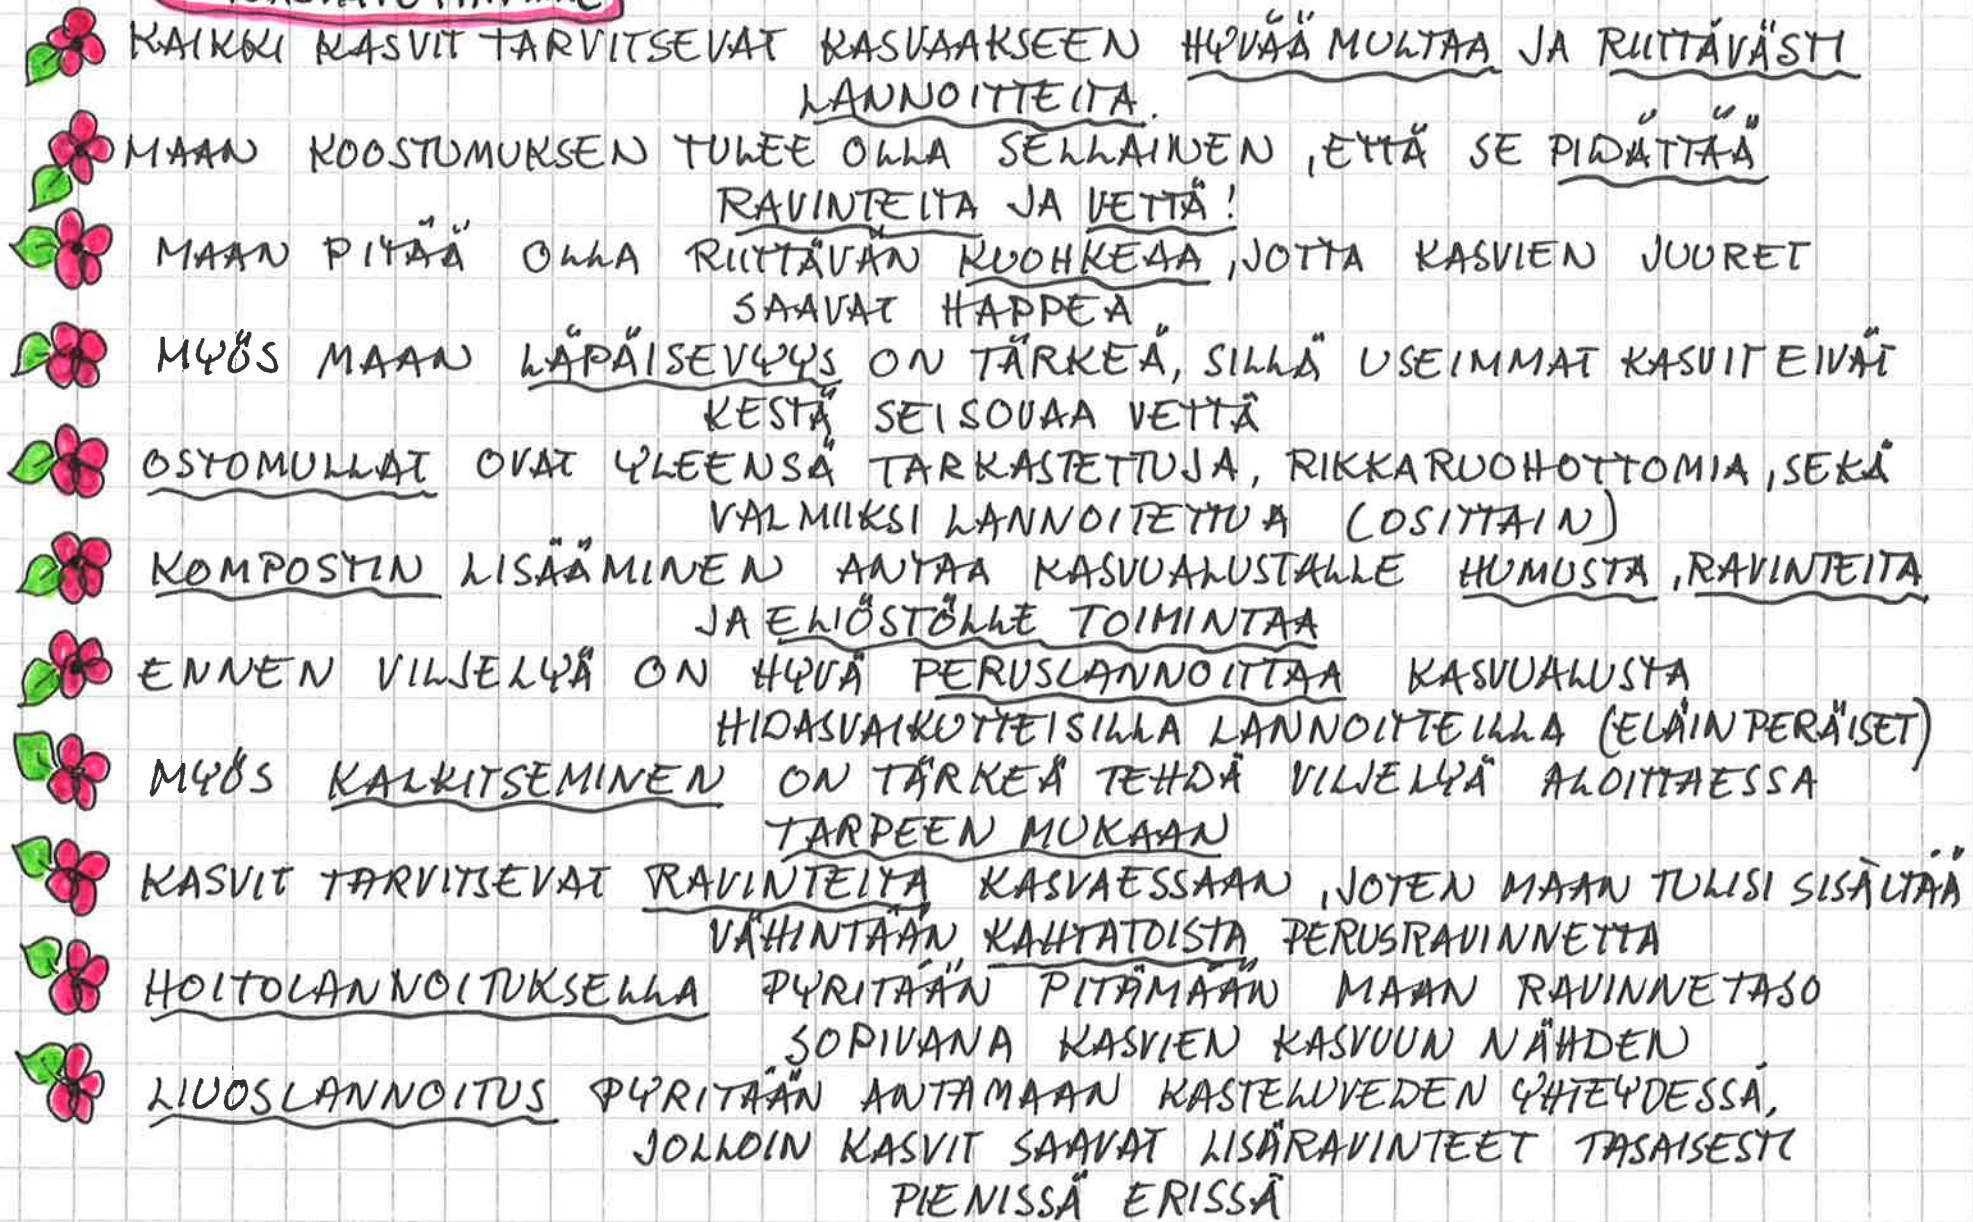 KAIKKI KASVIT TARVITSEVAT KASVAAKSEEN HYVÄÄ MULTAA JA RIITTÄVÄSTI
LANNOITTEITA.
MAAN KOOSTUMUKSEN TULEE OLLA SELLAINEN, ETTÄ SE PIDÄTTÄÄ
RAVINTEITA JA VETTÄ!
MAAN PITÄÄ OLLA RIITTÄVÄN KUOHKEAA, JOTTA KASVIEN JUURET
SAAVAT HAPPEA
MYÖS MAAN LÄPÄISEVYYS ON TÄRKEÄ, SILLÄ USEIMMAT KASVIT EIVÄT
KESTÄ SEISOVAA VETTÄ
OSTOMULLAT OVAT YLEENSÄ TARKASTETTUJA, RIKKARUOHOTTOMIA, SEKÄ
VALMIIKSI LANNOITETTUA (OSITTAIN)
KOMPOSTIN LISÄÄMINEN ANTAA KASVUALUSTALLE HUMUSTA, RAVINTEITA
JA ELIÖSTÖLLE TOIMINTAA
ENNEN VILJELYÄ ON HYVÄ PERUSLANNOITTAA KASVUALUSTA
HIDASVAIKUTTEISILLA LANNOITTEILLA (ELÄINPERÄISET)
MYÖS KALKITSEMINEN ON TÄRKEÄ TEHDÄ VILJELYÄ ALOITTAESSA
TARPEEN MUKAAN
KASVIT TARVITSEVAT RAVINTEITA KASVAESSAAN, JOTEN MAAN TULISI SISÄLTÄÄ
VÄHINTÄÄN KAHTATOISTA PERUSRAVINNETTA
HOITOLANNOITUKSELLA PYRITÄÄN PITÄMÄÄN MAAN RAVINNETASO
SOPIVANA KASVIEN KASVUUN NÄHDEN
LIUOSLANNOITUS PYRITÄÄN ANTAMAAN KASTELUVEDEN YHTEYDESSÄ,
JOLLOIN KASVIT SAAVAT LISÄRAVINTEET TASAISESTI
PIENISSÄ ERISSÄ